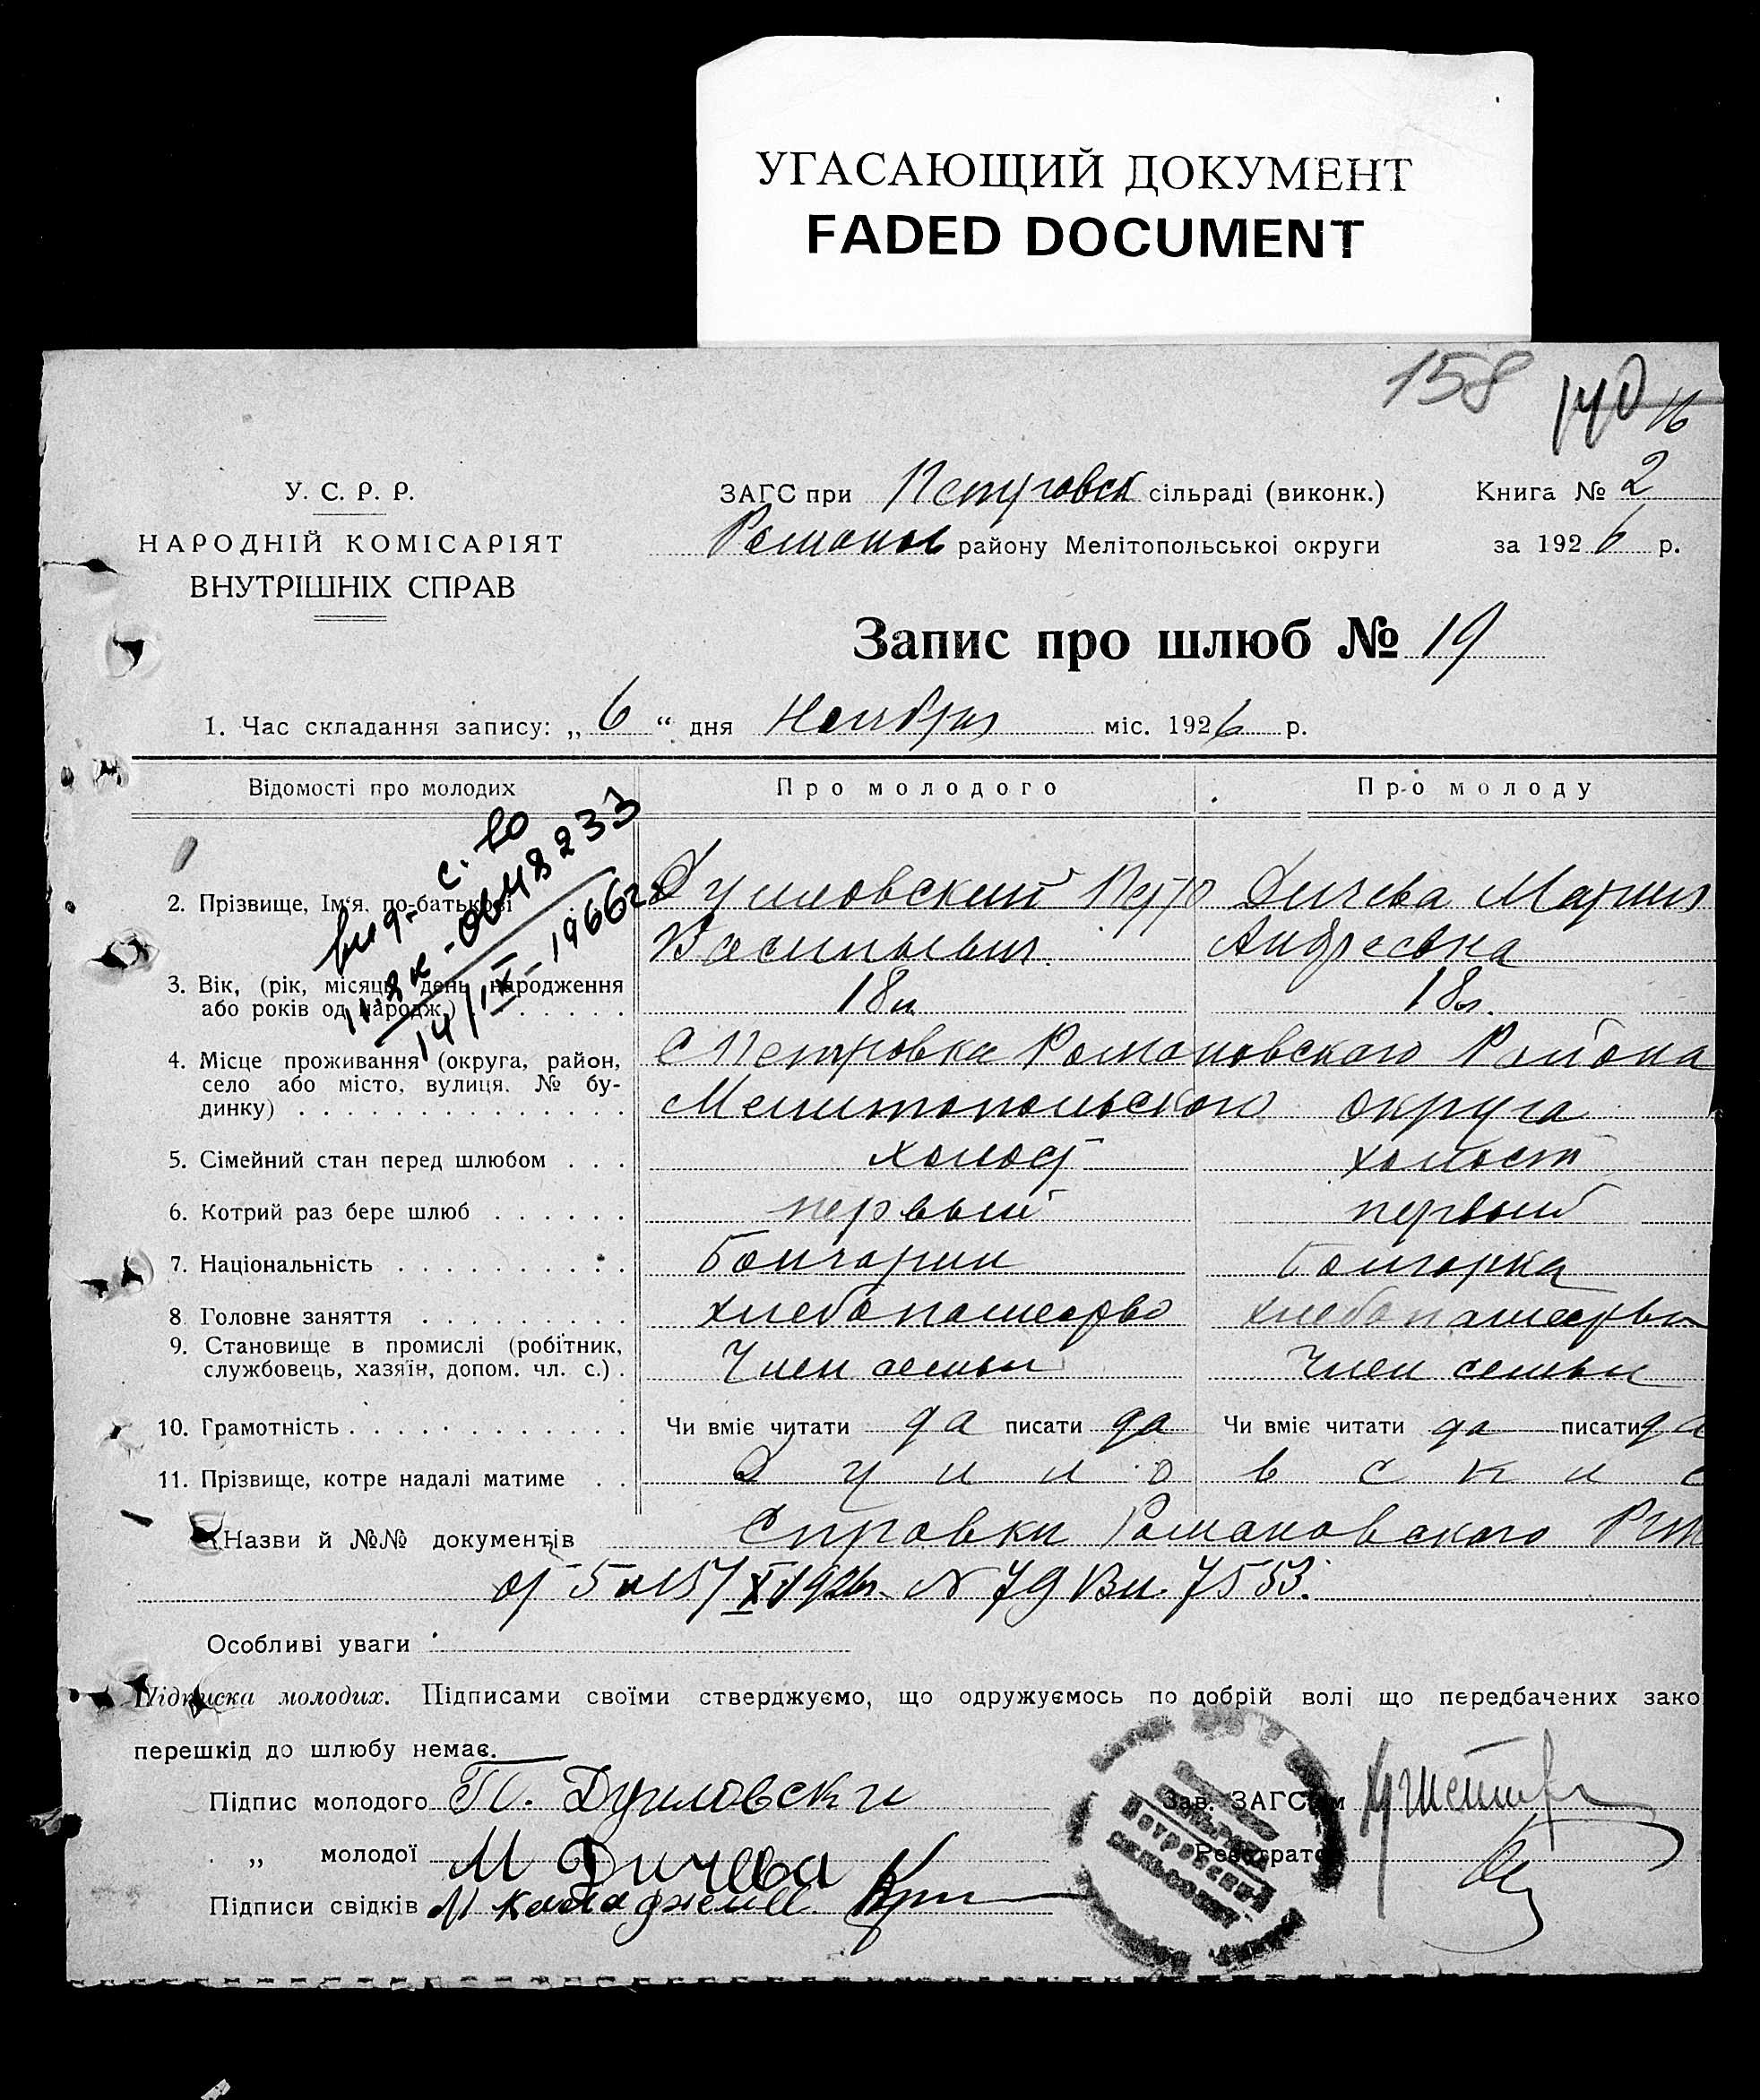 УГАСАЮЩИЙ ДОКУМЕНТ
FADED DOCUMENT
158 140 16
У. С. Р. Р.
НАРОДНІЙ КОМІСАРІЯТ
ВНУТРІШНІХ СПРАВ
ЗАГС при Петровск сільраді (виконк.) Книга № 2
Романов району Мелітопольської округи за 1926 р.
Запис про шлюб № 19
1. Час складання запису: „ 6 “ дня Ноября міс. 1926 р.
Відомості про молодих Про молодого Про молоду
2. Прізвище, Ім'я, по-батькові Дуиловский Петр Дичева Мария
Васильевич. Андреевна
3. Вік, (рік, місяць, день народження
або років од народж.) 18 л. 18 л.
вид. с. во
14/IX-1966г
4. Місце проживання (округа, район,
село або місто, вулиця, № бу-
динку)
С Петровка Романовского Района
Мелитопольского округа
5. Сімейний стан перед шлюбом холост холост
6. Котрий раз бере шлюб первый первый
7. Національність Болгарин Болгарка
8. Головне заняття хлебопашество хлебопашество
9. Становище в промислі (робітник,
службовець, хазяїн, допом. чл. с.) Член семьи Член семьи
10. Грамотність Чи вміє читати да писати да Чи вміє читати да писати да
11. Прізвище, котре надалі матиме Дуиловские
Назви й №№ документів Справки Романовского
7553.
Особливі уваги
Підписка молодих. Підписами своїми стверджуємо, що одружуємось по добрій волі що передбачених зако
перешкід до шлюбу немає.
Підпис молодого П. Дуиловски Зав. ЗАГС'ом
„ молодої М Дичева Реєстратор
Підписи свідків
Петровский